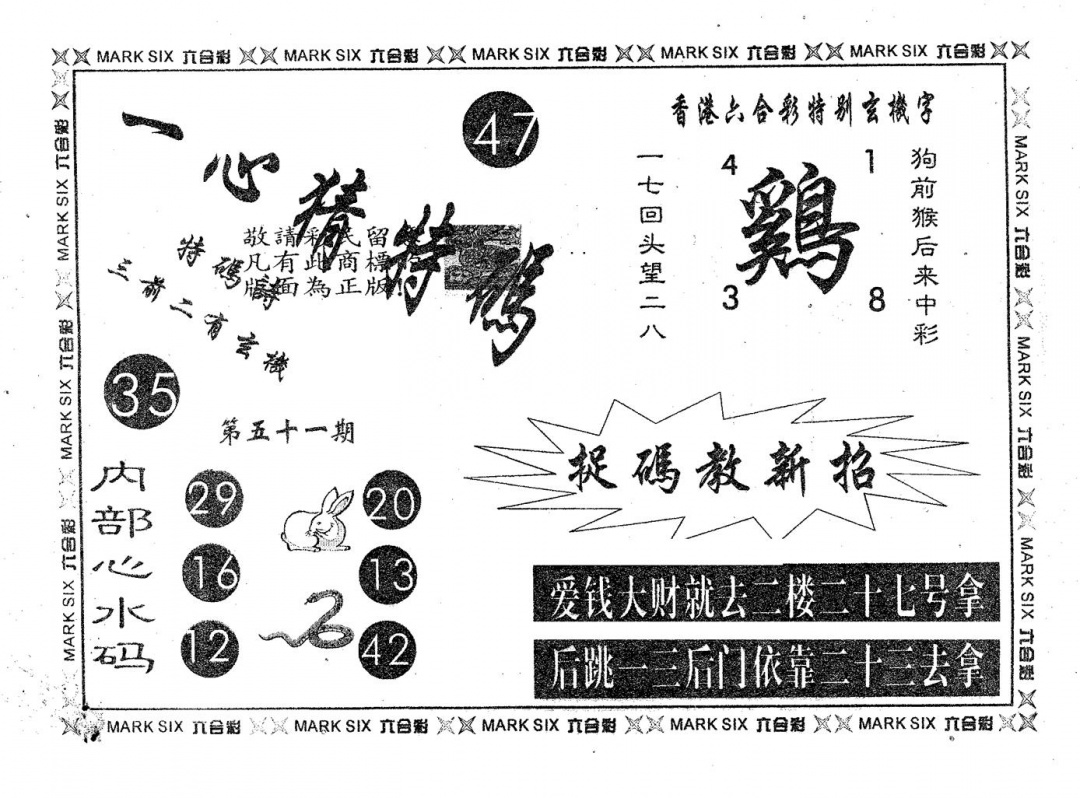 MARK SIX 六合彩 MARK SIX 六合彩 MARK SIX 六合彩 MARK SIX 六合彩 MARK SIX 六合彩
一心猜特碼
47
敬請彩民留
凡有此商標
版面為正版!
特碼詩
三前二有玄機
35
第五十一期
内部心水码
29
20
16
13
12
42
香港六合彩特别玄機字
一七回头望二八
4
1
鷄
3
8
狗前猴后来中彩
捉碼教新招
爱钱大财就去二楼二十七号拿
后跳一三后门依靠二十三去拿
MARK SIX 六合彩 MARK SIX 六合彩 MARK SIX 六合彩
MARK SIX 六合彩 MARK SIX 六合彩 MARK SIX 六合彩
MARK SIX 六合彩 MARK SIX 六合彩 MARK SIX 六合彩 MARK SIX 六合彩 MARK SIX 六合彩